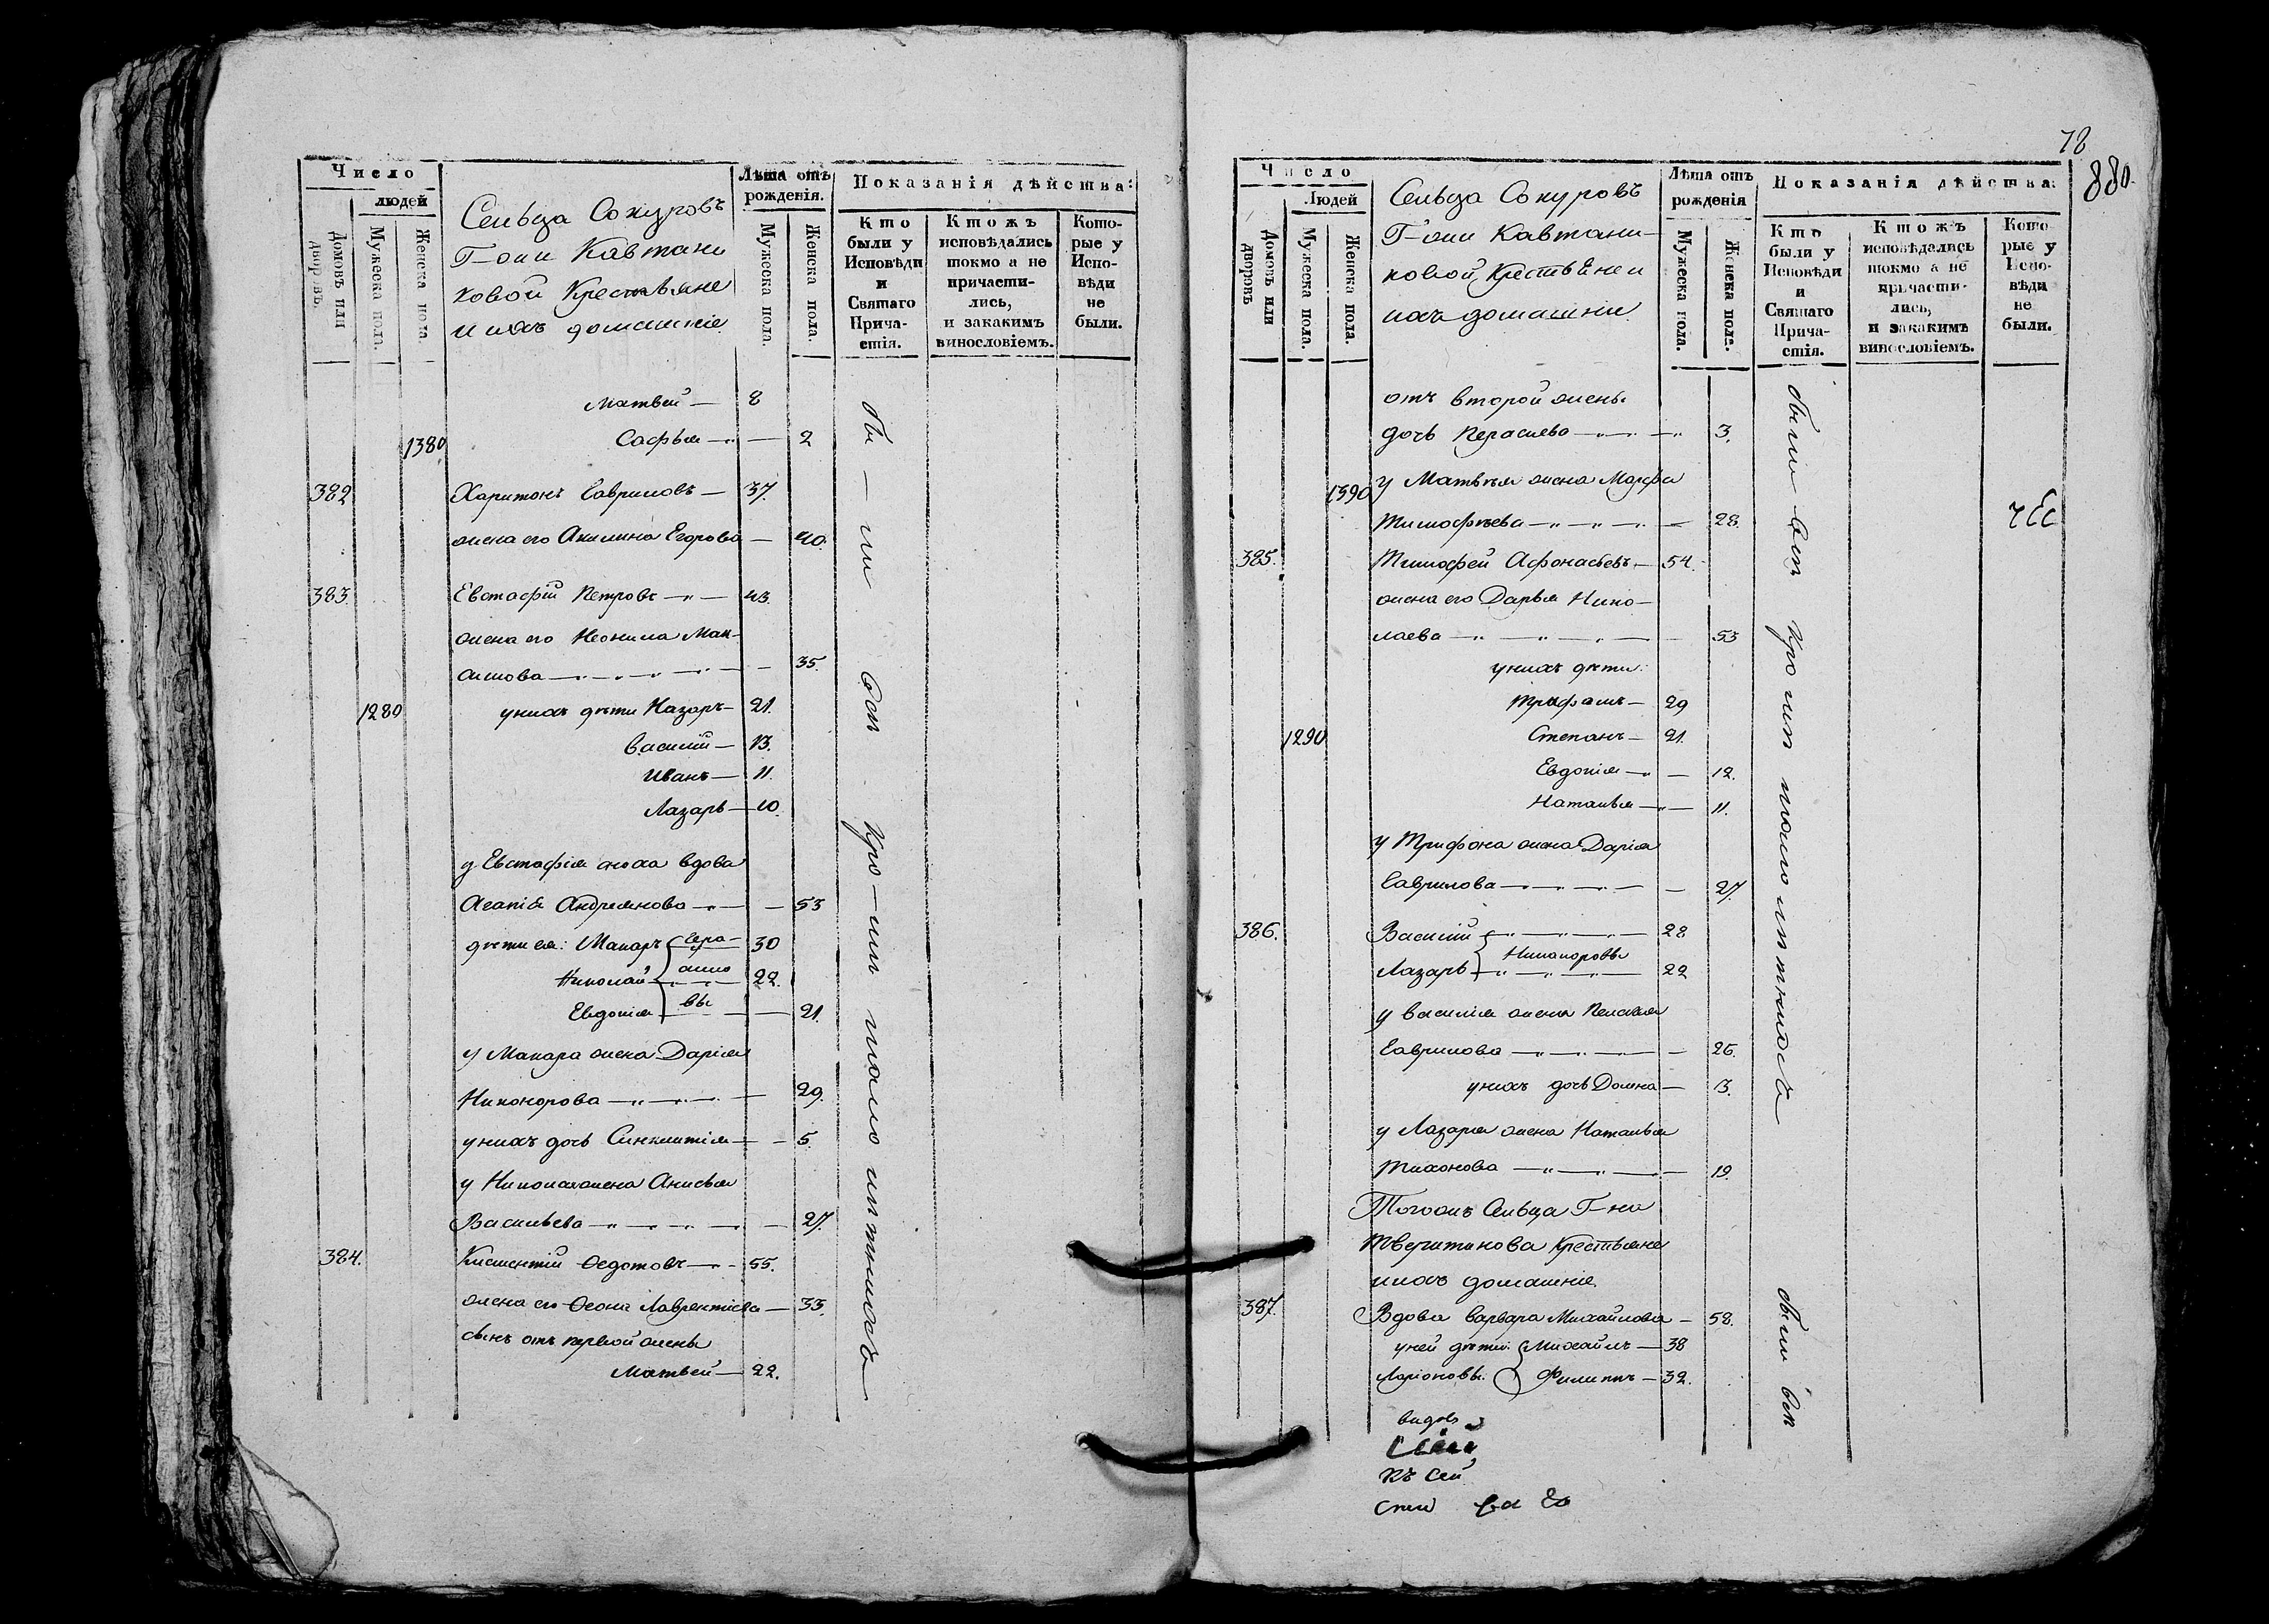 Число
людей
Домовъ или дворовъ.
Мужеска пола.
Женска пола.
Сельца Сокуровъ
Г-жи Кавтани
ковой Крестьяне
и ихъ домашніе
Лѣта отъ рожденія.
Мужеска пола.
Женска пола.
Показанія дѣйства:
Кто были у Исповѣди и Святаго Прича-стія.
Ктожъ исповѣдались токмо а не причасти-лись, и закакимъ винословіемъ.
Кото-рые у Испо-вѣди не были.
Матвей — 8
1380 Софья — 2
382 Харитонъ Гавриловъ — 37.
жена его Акилина Егорова — 40.
383. Евстафій Петровъ — 43.
жена его Неонила Мак-
симова — 35.
1280 у нихъ дѣти Назаръ — 21.
Василій — 13.
Иванъ — 11.
Лазарь — 10.
у Евстафія сноха вдова
Агапія Андреянова — 53
дѣти ея: Макаръ Гера- 30
Николай симо 22.
Евдокія вы 21.
у Макара жена Дарія
Никонорова — 29.
у нихъ дочь Синклитія — 5.
у Николая жена Анисья
Васильева — 27.
384. Климентій Ѳедотовъ — 55.
жена его Ѳеона Лаврентіева — 33.
сынъ отъ первой жены
Матвей — 22.
78
880
Число
Людей
Домовъ или дворовъ
Мужеска пола.
Женска пола.
Сельца Сокуровъ
Г-жи Кавтани-
ковой Крестьяне и
ихъ домашни
Лѣта отъ рожденія
Мужеска пола.
Женска пола.
Показанія дѣйства:
Кто были у Исповѣди и Святаго Прича-стія.
Ктожъ исповѣдались токмо а не причасти-лись, и закакимъ винословіемъ.
Кото рые у Испо-вѣди не были.
отъ второй жены
дочь — 3.
1390 у Матвѣя жена Марфа
Тимофѣева — 28.
385. Тимофей Афонасьевъ — 54.
жена его Дарья Нико-
лаева — 53
у нихъ дѣти:
Трифонъ — 29
1290 Степанъ — 21.
Евдокія — 12.
Наталья — 11.
у Трифона жена Дарія
Гаврилова — 27.
386. Василій 28
Никаноровы
Лазарь 22
у Василія жена Пелагея
Гаврилова — 26.
у нихъ дочь Домна — 3.
у Лазаря жена Наталья
Тихонова — 19.
Тогожъ Сельца Г-на
Тверитинова Крестьяне
и ихъ домашніе.
387. Вдова Варвара Михайлова — 58.
у ней дѣти: Михайлъ — 38
Ларіоновы. Филиппъ — 32.